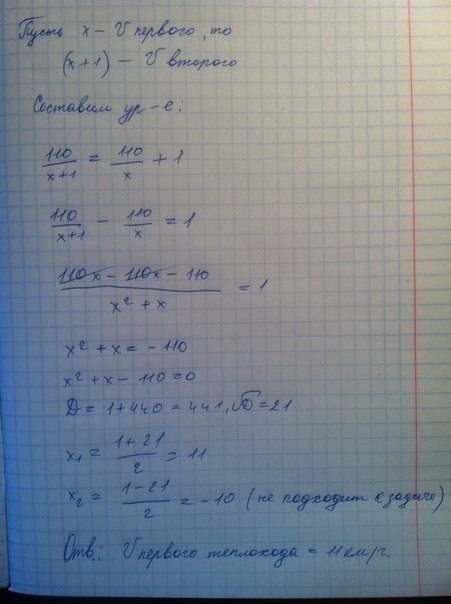 Пусть x – V первого, то
(x+1) – V второго
Составим ур–е:
110/(x+1) = 110/x + 1
110/(x+1) – 110/x = 1
(110x – 110x – 110)/(x² + x) = 1
x² + x = –110
x² + x – 110 = 0
D = 1 + 440 = 441, √D = 21
x₁ = (1+21)/2 = 11
x₂ = (1–21)/2 = –10 (не подходит к задаче)
Отв.: V первого теплохода = 11 км/ч.